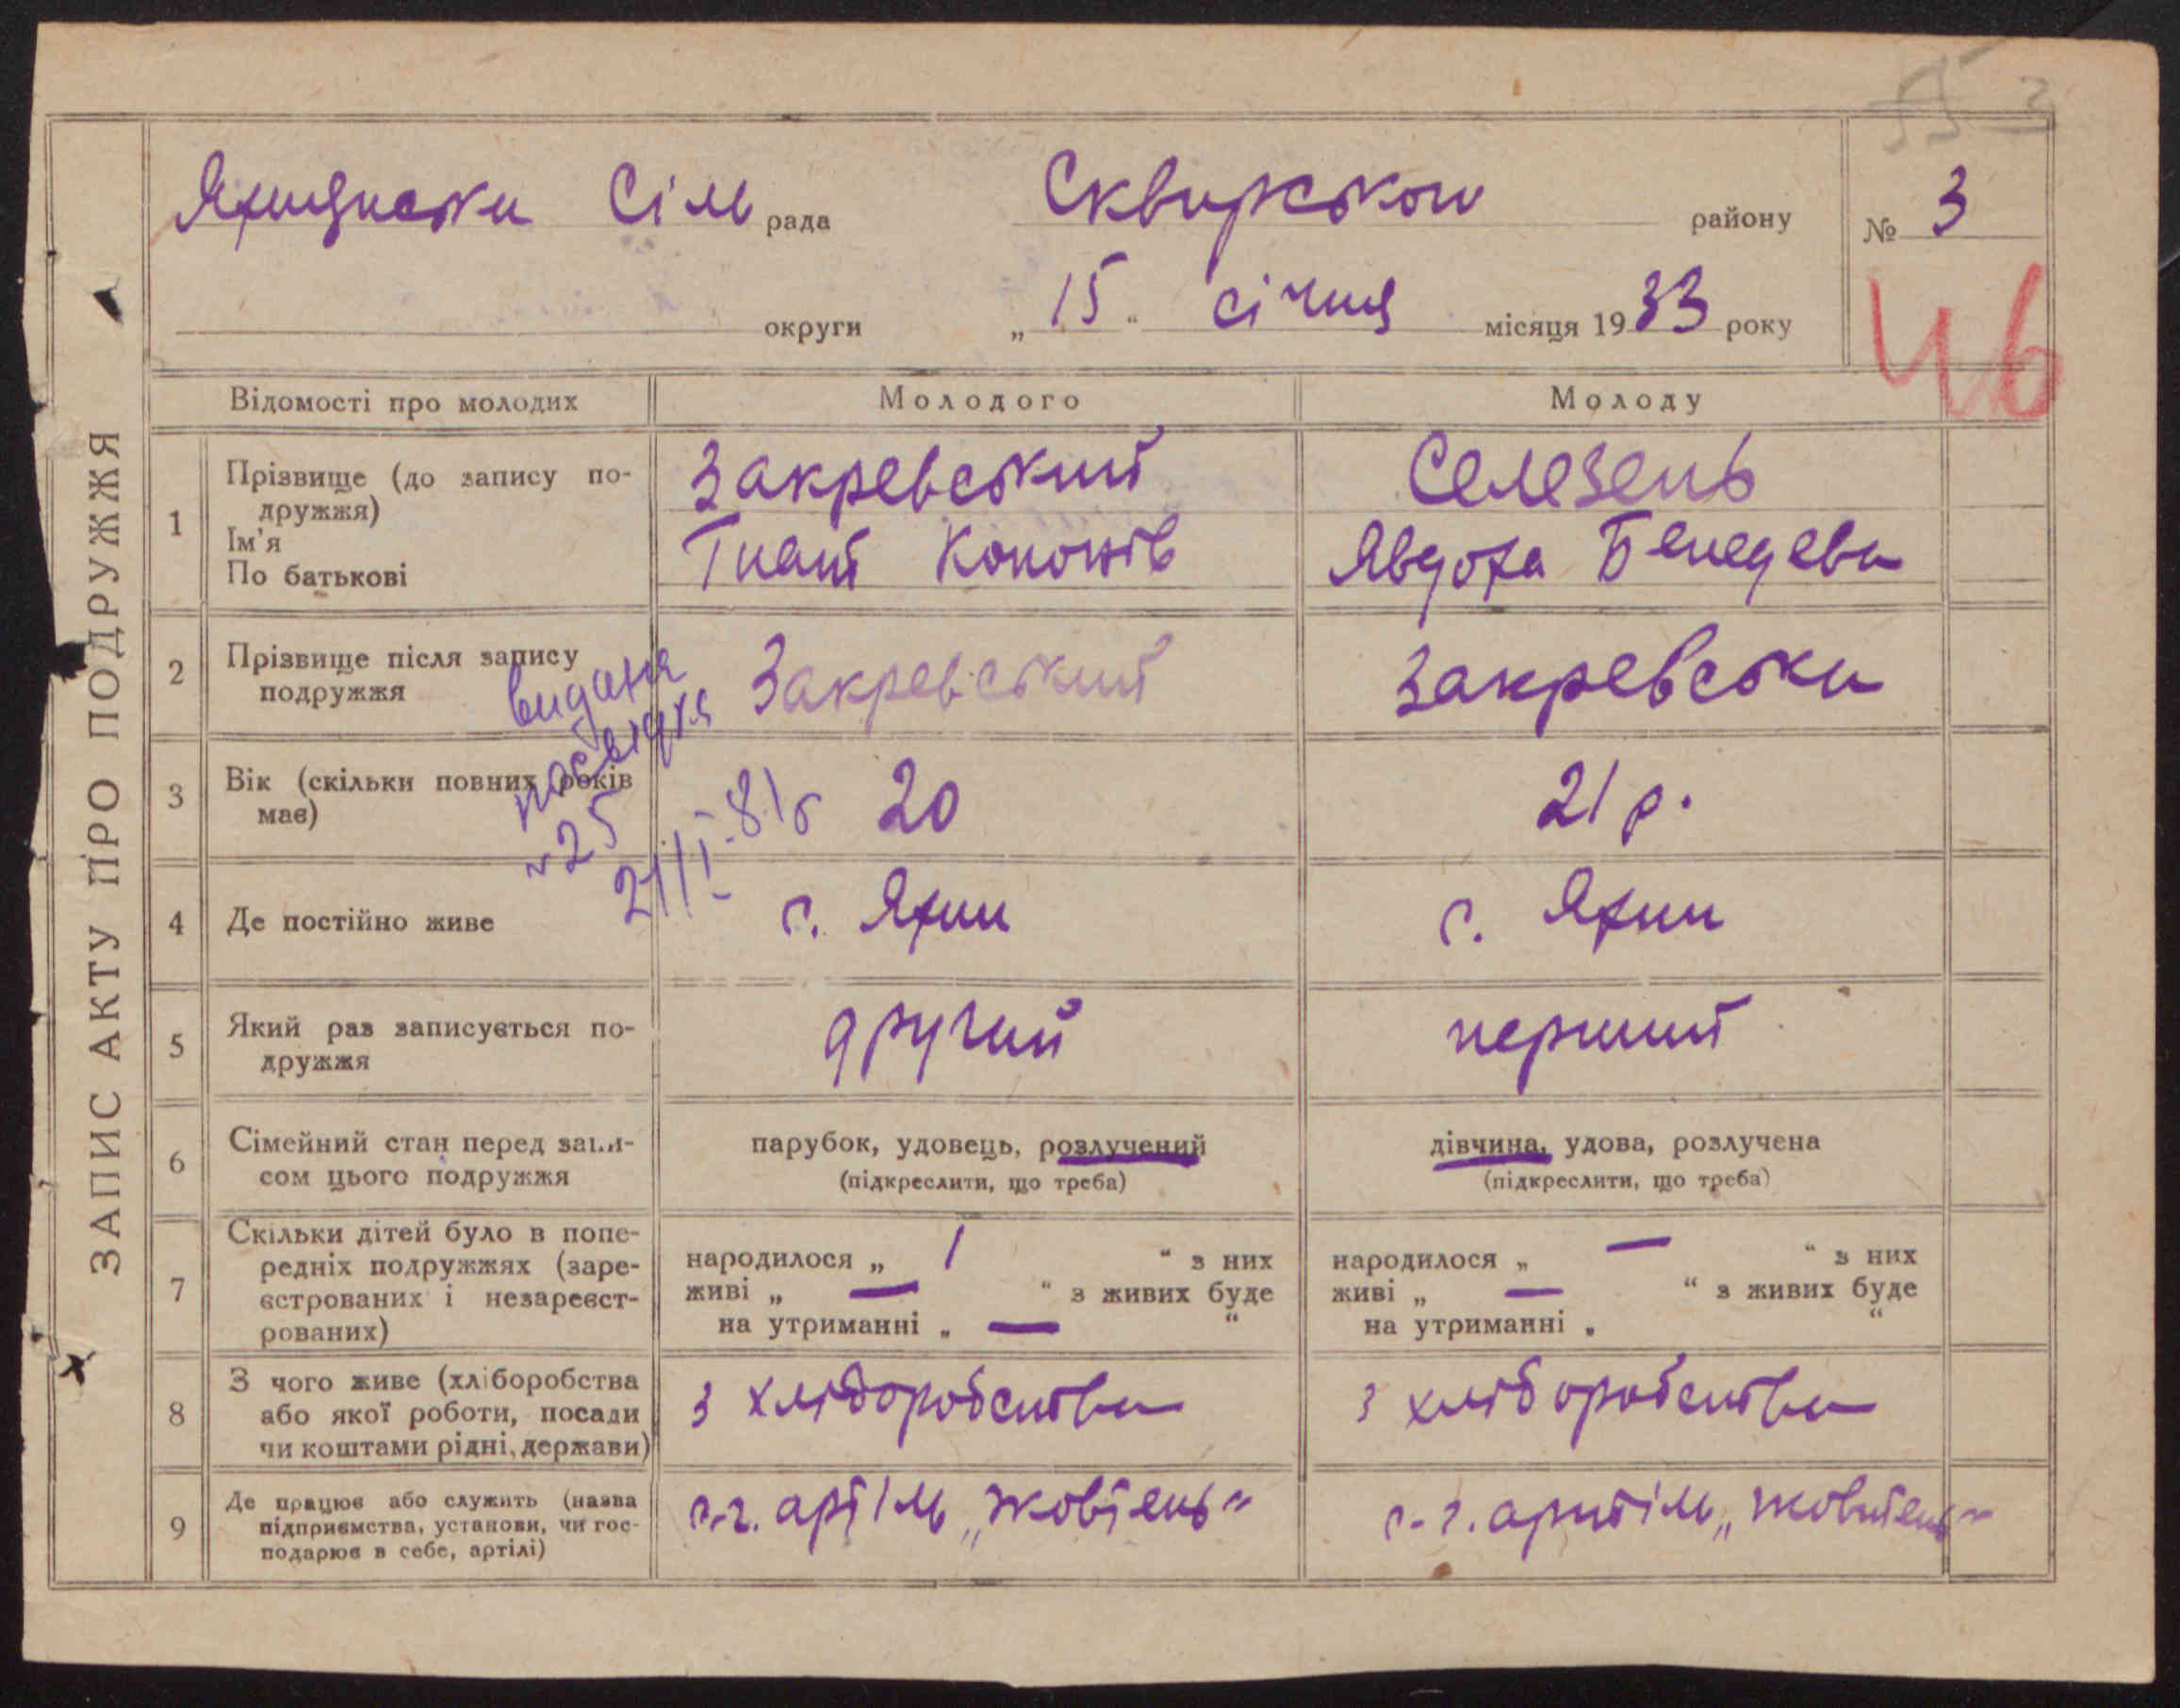 ЗАПИС АКТУ ПРО ПОДРУЖЖЯ
55 3
Сіль рада Сквирського району № 3
округи „ 15 “ січня місяця 1933 року
46
Відомості про молодих Молодого Молоду
1 Прізвище (до запису по-
дружжя)
Ім'я
По батькові
Закревський
Гнат Кононів
Селезень
Явдоха Бенедева
2 Прізвище після запису
подружжя
Закревський
Закревська
видана
посвідка
№25
21/I-81г
3 Вік (скільки повних років
має)
20
21 р.
4 Де постійно живе
с. Яхни
с. Яхни
5 Який раз записується по-
дружжя
другий
перший
6 Сімейний стан перед запи-
сом цього подружжя
парубок, удовець, розлучений
(підкреслити, що треба)
дівчина, удова, розлучена
(підкреслити, що треба)
7 Скільки дітей було в попе-
редніх подружжях (заре-
єстрованих і незареєст-
рованих)
народилося „ 1 “ з них
живі „ — “ з живих буде
на утриманні „ — “
народилося „ — “ з них
живі „ — “ з живих буде
на утриманні „ “
8 З чого живе (хліборобства
або якої роботи, посади
чи коштами рідні, держави)
з хліборобства
з хліборобства
9 Де працює або служить (назва
підприємства, установи, чи гос-
подарює в себе, артілі)
с.г. артіль „Жовтень“
с-г. артіль „Жовтень“